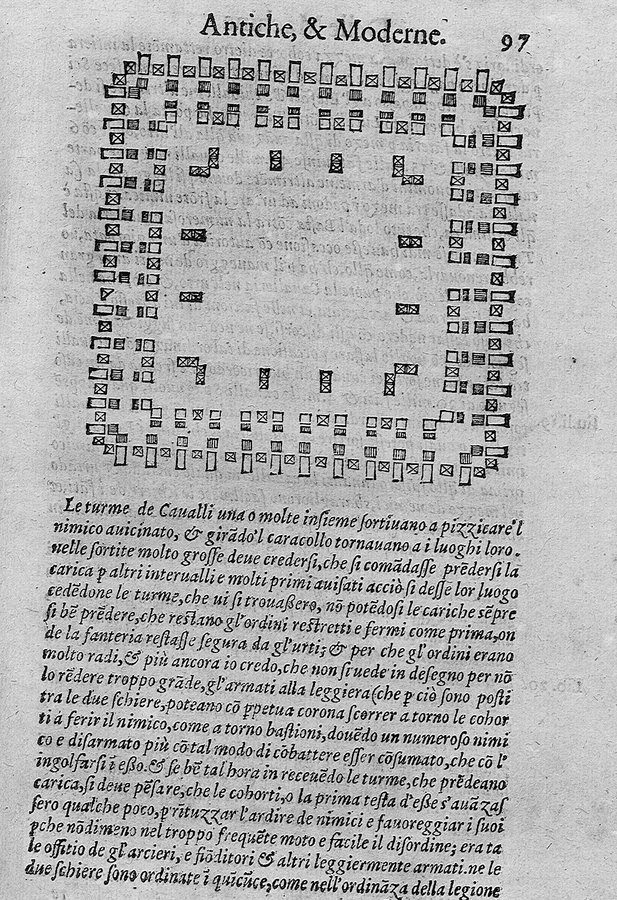 Antiche, & Moderne. 97
Le turme de Cavalli una o molte insieme sortiuano a pizzicare'l
nimico auicinato, & girādo'l caracollo tornauano a i luoghi loro.
nelle sortite molto grosse deue credersi, che si comādasse prēdersi la
carica p altri interualli e molti primi auisati acciò si desse lor luogo
cedēdone le turme, che ui si trouaßero, nō potēdosi le cariche sēpre
si bē prēdere, che restano gl'ordini restretti e fermi come prima, on
de la fanteria restasse segura da gl'urti; & per che gl'ordini erano
molto radi, & più ancora io credo, che non si uede in desegno per nō
lo rēdere troppo grāde, gl'armati alla leggiera (che p ciò sono posti
tra le due schiere, poteano cō ppetua corona scorrer a torno le cohor
ti à ferir il nimico, come a torno bastioni, douēdo un numeroso nimi
co e disarmato più cō tal modo di cōbattere esser cōsumato, che cō l'
ingolfarsi ī eßo. & se bē tal hora in receuēdo le turme, che prēdeano
carica, si deue pēsare, che le cohorti, o la prima testa d'eße s'auāzas
sero qualche poco, p rituzzar l'ardire de nimici e fauoreggiar i suoi
pche nōdimeno nel troppo frequēte moto e facile il disordine; era ta
le offitio de gl'arcieri, e fiōditori & altri leggiermente armati. ne le
due schiere sono ordinate ī quicūce, come nell'ordināza della legione